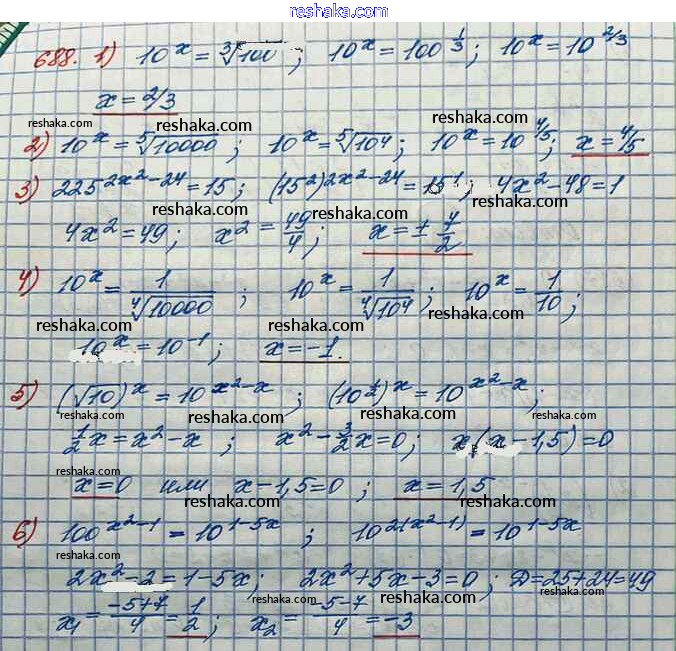 reshaka.com
688. 1) 10^x = ∛100 ; 10^x = 100^(1/3) ; 10^x = 10^(2/3)
x = 2/3
reshaka.com
reshaka.com
2) 10^x = ⁵√10000 ; 10^x = ⁵√10⁴ ; 10^x = 10^(4/5) ; x = 4/5
reshaka.com reshaka.com reshaka.com
3) 225^(2x²-24) = 15 ; (15²)^(2x²-24) = 15¹ ; 4x² - 48 = 1
reshaka.com reshaka.com reshaka.com
4x² = 49 ; x² = 49/4 ; x = ± 7/2
reshaka.com
4) 10^x = 1/⁴√10000 ; 10^x = 1/⁴√10⁴ ; 10^x = 1/10 ;
reshaka.com reshaka.com reshaka.com
10^x = 10^(-1) ; x = -1.
reshaka.com
5) (√10)^x = 10^(x²-x) ; (10^(1/2))^x = 10^(x²-x) ;
reshaka.com reshaka.com reshaka.com
1/2x = x² - x ; x² - 3/2x = 0 ; x(x - 1,5) = 0
reshaka.com
x = 0 или x - 1,5 = 0 ; x = 1,5
reshaka.com reshaka.com
6) 100^(x²-1) = 10^(1-5x) ; 10^(2(x²-1)) = 10^(1-5x)
reshaka.com reshaka.com reshaka.com
2x² - 2 = 1 - 5x ; 2x² + 5x - 3 = 0 ; D = 25 + 24 = 49
reshaka.com reshaka.com reshaka.com
x₁ = (-5+7)/4 = 1/2 ; x₂ = (-5-7)/4 = -3